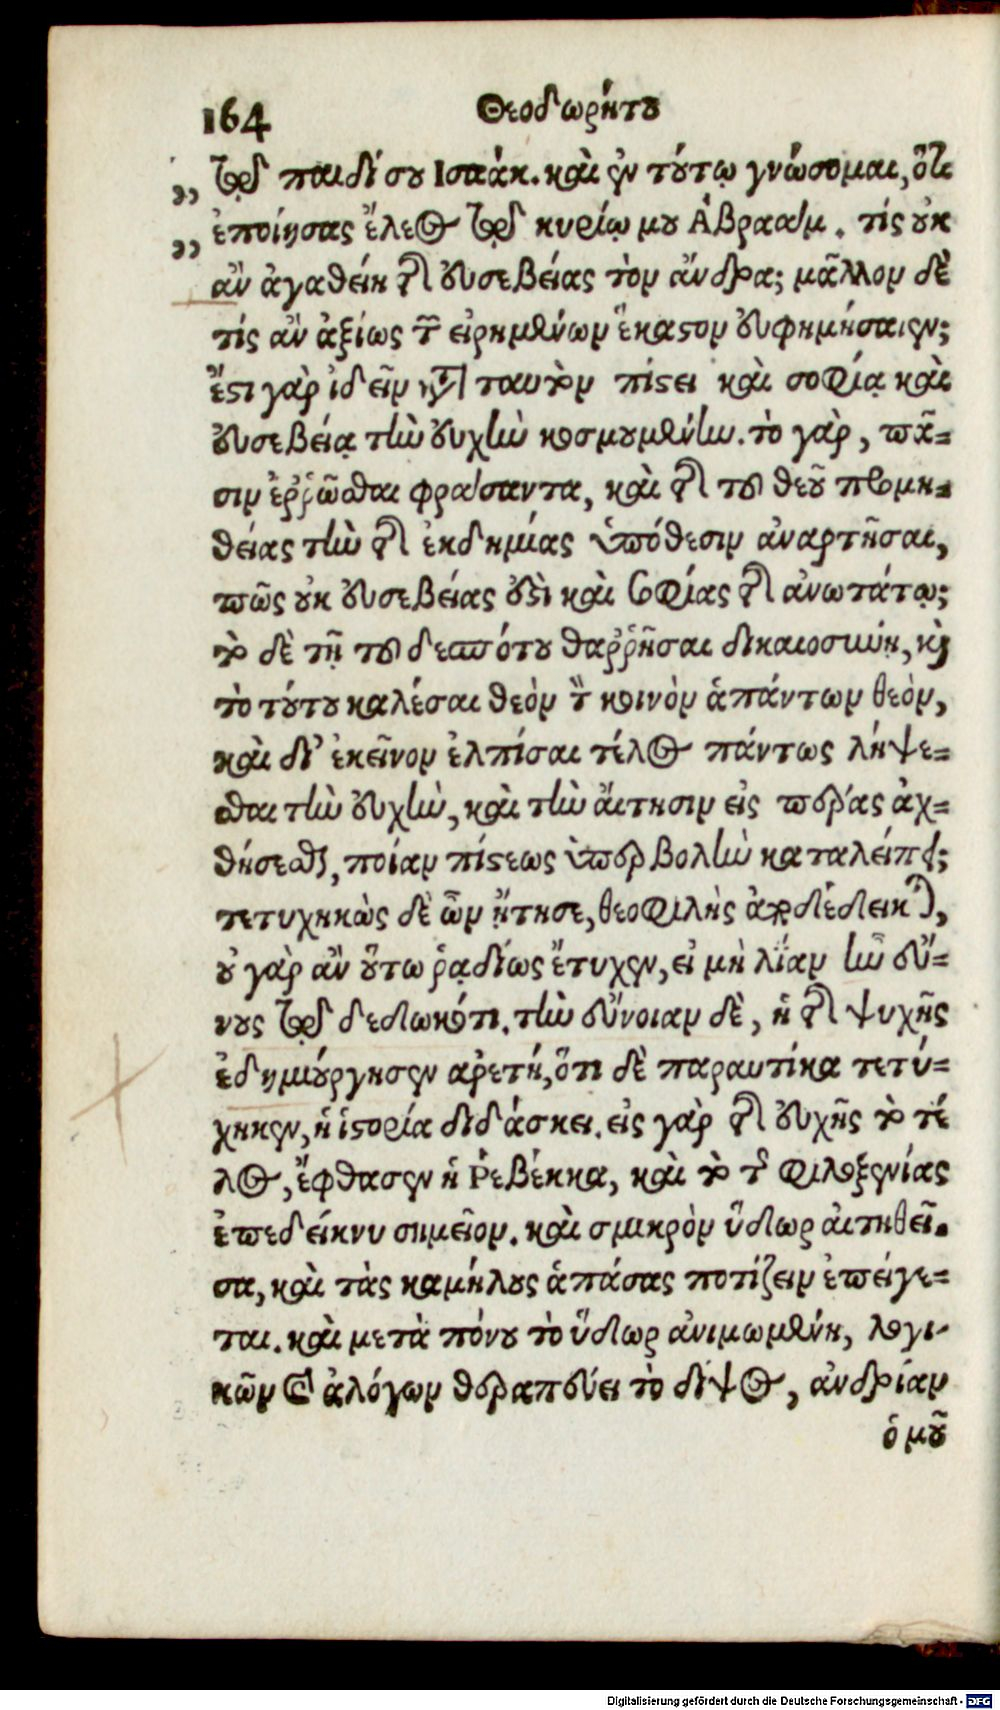 164 Θεοδωρήτου
„ τῷ παιδί σου Ισαάκ. καὶ ἐν τούτῳ γνώσομαι, ὅτι
„ ἐποίησας ἔλεος τῷ κυρίῳ μου Ἀβραάμ. τίς οὐκ
ἂν ἀγαθείη τῆς εὐσεβείας τὸν ἄνδρα; μᾶλλον δὲ
τίς ἂν ἀξίως τῶν εἰρημένων ἕκαστον εὐφημήσαιεν;
ἔστι γὰρ ἰδεῖν κατὰ ταυτὸν πίστει καὶ σοφίᾳ καὶ
εὐσεβείᾳ τὴν εὐχὴν κοσμουμένην. τὸ γὰρ, πᾶ-
σιν ἐῤῥῶσθαι φράσαντα, καὶ τῆς τοῦ θεοῦ προμη-
θείας τὴν τῆς ἐκδημίας ὑπόθεσιν ἀναρτῆσαι,
πῶς οὐκ εὐσεβείας ἐστὶ καὶ σοφίας τῆς ἀνωτάτω;
τὸ δὲ τῇ τοῦ δεσπότου θαῤῥῆσαι δικαιοσύνῃ, καὶ
τὸ τούτου καλέσαι θεὸν τὸν κοινὸν ἁπάντων θεὸν,
καὶ δι' ἐκεῖνον ἐλπίσαι τέλος πάντως λήψε-
σθαι τὴν εὐχὴν, καὶ τὴν αἴτησιν εἰς πέρας ἀχ-
θήσεσθαι, ποίαν πίστεως ὑπερβολὴν καταλείπει;
τετυχηκὼς δὲ ὧν ᾔτησε, θεοφιλὴς ἀποδέδεικται,
οὐ γὰρ ἂν οὕτω ῥᾳδίως ἔτυχεν, εἰ μὴ λίαν ἦν εὔ-
νους τῷ δεδωκότι. τὴν εὔνοιαν δὲ, ἡ τῆς ψυχῆς
ἐδημιούργησεν ἀρετή, ὅτι δὲ παραυτίκα τετύ-
χηκεν, ἡ ἱστορία διδάσκει. εἰς γὰρ τῆς εὐχῆς τὸ τέ
λος, ἔφθασεν ἡ Ῥεβέκκα, καὶ τὸ τῆς φιλοξενίας
ἐπεδείκνυ σημεῖον. καὶ σμικρὸν ὕδωρ αἰτηθεῖ-
σα, καὶ τὰς καμήλους ἁπάσας ποτίζειν ἐπείγε-
ται. καὶ μετὰ πόνου τὸ ὕδωρ ἀνιμωμένη, λογι-
κῶν καὶ ἀλόγων θεραπεύει τὸ δίψος, ἀνδρίαν
ὁμοῦ
Digitalisierung gefördert durch die Deutsche Forschungsgemeinschaft - DFG